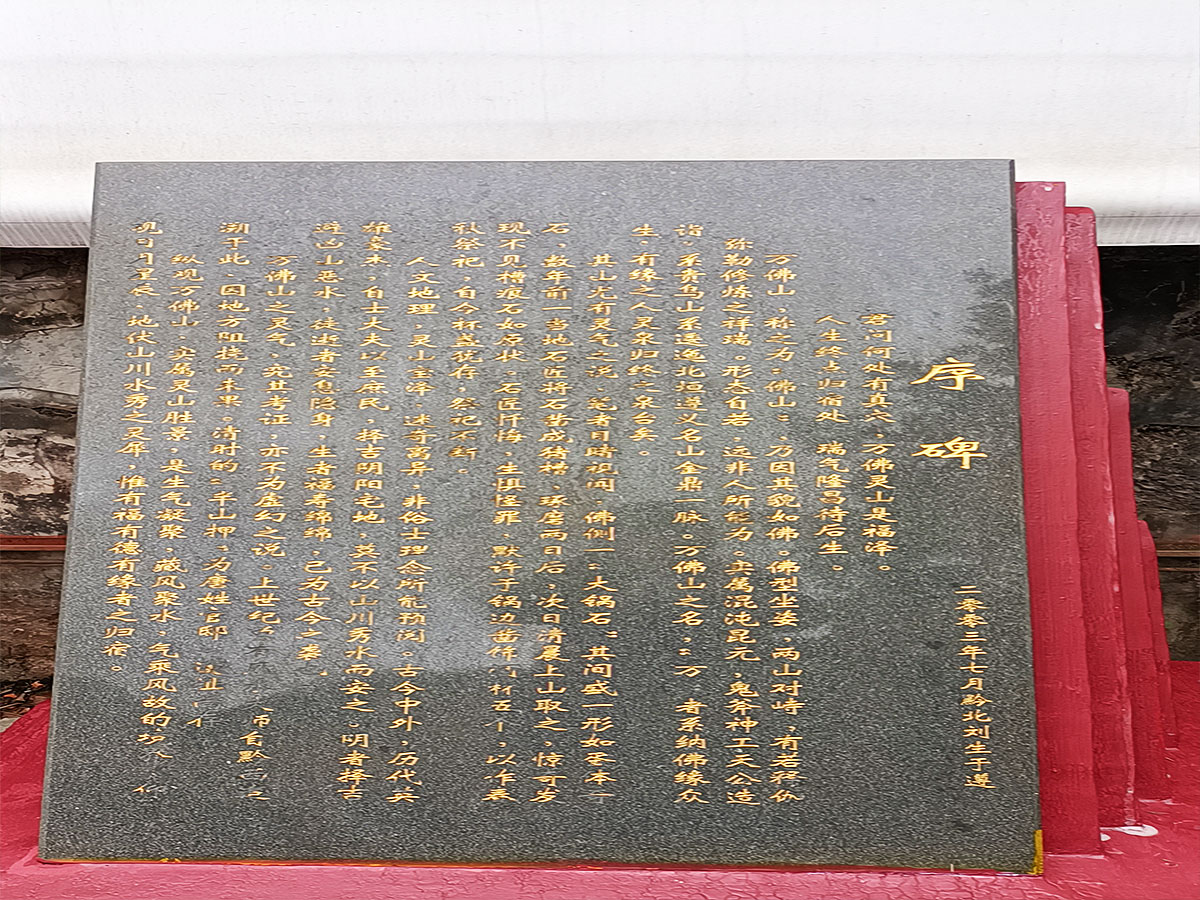 序碑
二零零二年七月黔北刘生于遵
君问何处有真穴，万佛灵山是福泽。
人生终点归宿处 瑞气隆昌待后生。
万佛山，称之为“佛山”，乃因其貌如佛。佛型坐姿，两山对峙，有若释伽
弥勒修炼之祥瑞。形态自若，远非人所能为。实属混沌昆元，鬼斧神工，天公造
诣。系贵乌山系逶迤北垣遵义名山金鼎一脉。万佛山之名，“万 者系纳佛缘众
生，有缘之人灵泉归终之泉台矣。
其山尤有灵气之说，笔者目睹说闻，佛侧一“大锅石”，其间盛一形如笨本
石，数年前一当地石匠将石凿成猪槽，琢磨两日后，次日清晨上山取之，惊奇发
现不见槽痕石如原状，石匠忏悔，生惧怪罪，默许于锅边凿 杯五个，以作春
秋祭祀，自今杯盏犹存，祭祀不断。
人文地理，灵山宝泽，迷奇离异，非俗士理念所能预阅。古今中外，历代英
雄豪杰，自士大夫以至庶民，择吉阴阳宅地，莫不以山川秀水而安之。阴者择吉
避凶山恶水，徒逝者安息隐身，生者福寿绵绵，已为古今之袭
万佛山之灵气，究其考证，亦不为虚幻之说。上世纪 自黔 之
溯于此，因地方阻挠而未果。清时的“半山押”为唐姓官邸
纵观万佛山，实属灵山胜景，是生气凝聚，藏风聚水，气乘风故的
观日月星辰 地伏山川水秀之灵犀，惟有福有德有缘者之归宿。